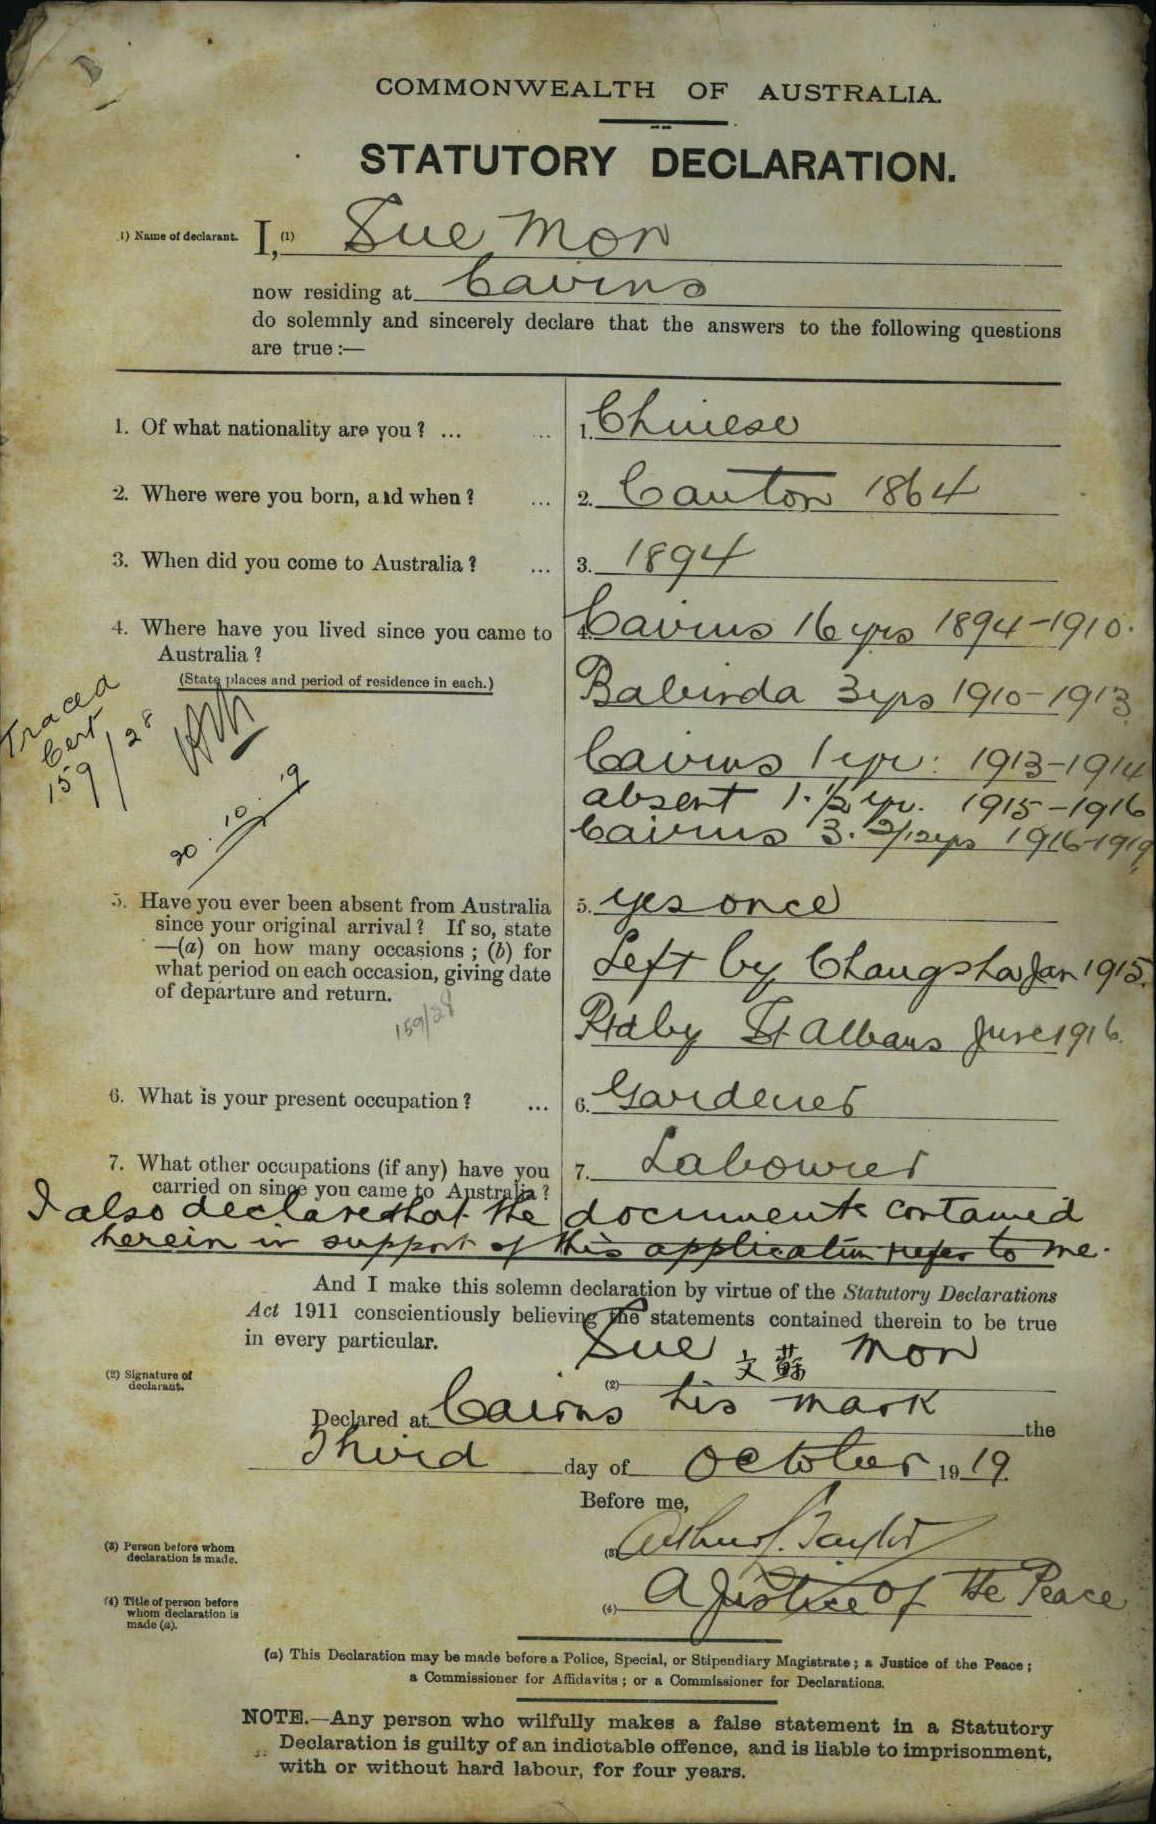 COMMONWEALTH OF AUSTRALIA.
STATUTORY DECLARATION.
1) Name of declarant. I, (1) Sue Mon
now residing at Cairns
do solemnly and sincerely declare that the answers to the following questions
are true:—
1. Of what nationality are you? ... ... 1. Chinese
2. Where were you born, and when? ... 2. Canton 1864
3. When did you come to Australia? ... 3. 1894
4. Where have you lived since you came to 4. Cairns 16 yrs 1894-1910.
Australia?
(State places and period of residence in each.) Babinda 3 yrs 1910-1913
Traced
Cert
159/28
Cairns 1 yr: 1913-1914
absent 1.½ yr. 1915-1916
20.10.19 Cairns 3.2/12 yrs 1916-1919
5. Have you ever been absent from Australia 5. yes once
since your original arrival? If so, state
—(a) on how many occasions; (b) for Left by Changsha Jan 1915.
what period on each occasion, giving date
of departure and return.
159/28 Rtd by St Albans June 1916.
6. What is your present occupation? ... 6. Gardener
7. What other occupations (if any) have you 7. Labourer
carried on since you came to Australia?
I also declare that the documents contained
herein in support of this application refer to me.
And I make this solemn declaration by virtue of the Statutory Declarations
Act 1911 conscientiously believing the statements contained therein to be true
in every particular.
Sue 文蘇 Mon
(2) Signature of
declarant. (2)
his mark
Declared at Cairns the
Third day of October 1919.
Before me,
(3) Person before whom
declaration is made. (3) Arthur J. Taylor
(4) Title of person before
whom declaration is
made (a). (4) A Justice of the Peace
(a) This Declaration may be made before a Police, Special, or Stipendiary Magistrate; a Justice of the Peace;
a Commissioner for Affidavits; or a Commissioner for Declarations.
NOTE.—Any person who wilfully makes a false statement in a Statutory
Declaration is guilty of an indictable offence, and is liable to imprisonment,
with or without hard labour, for four years.